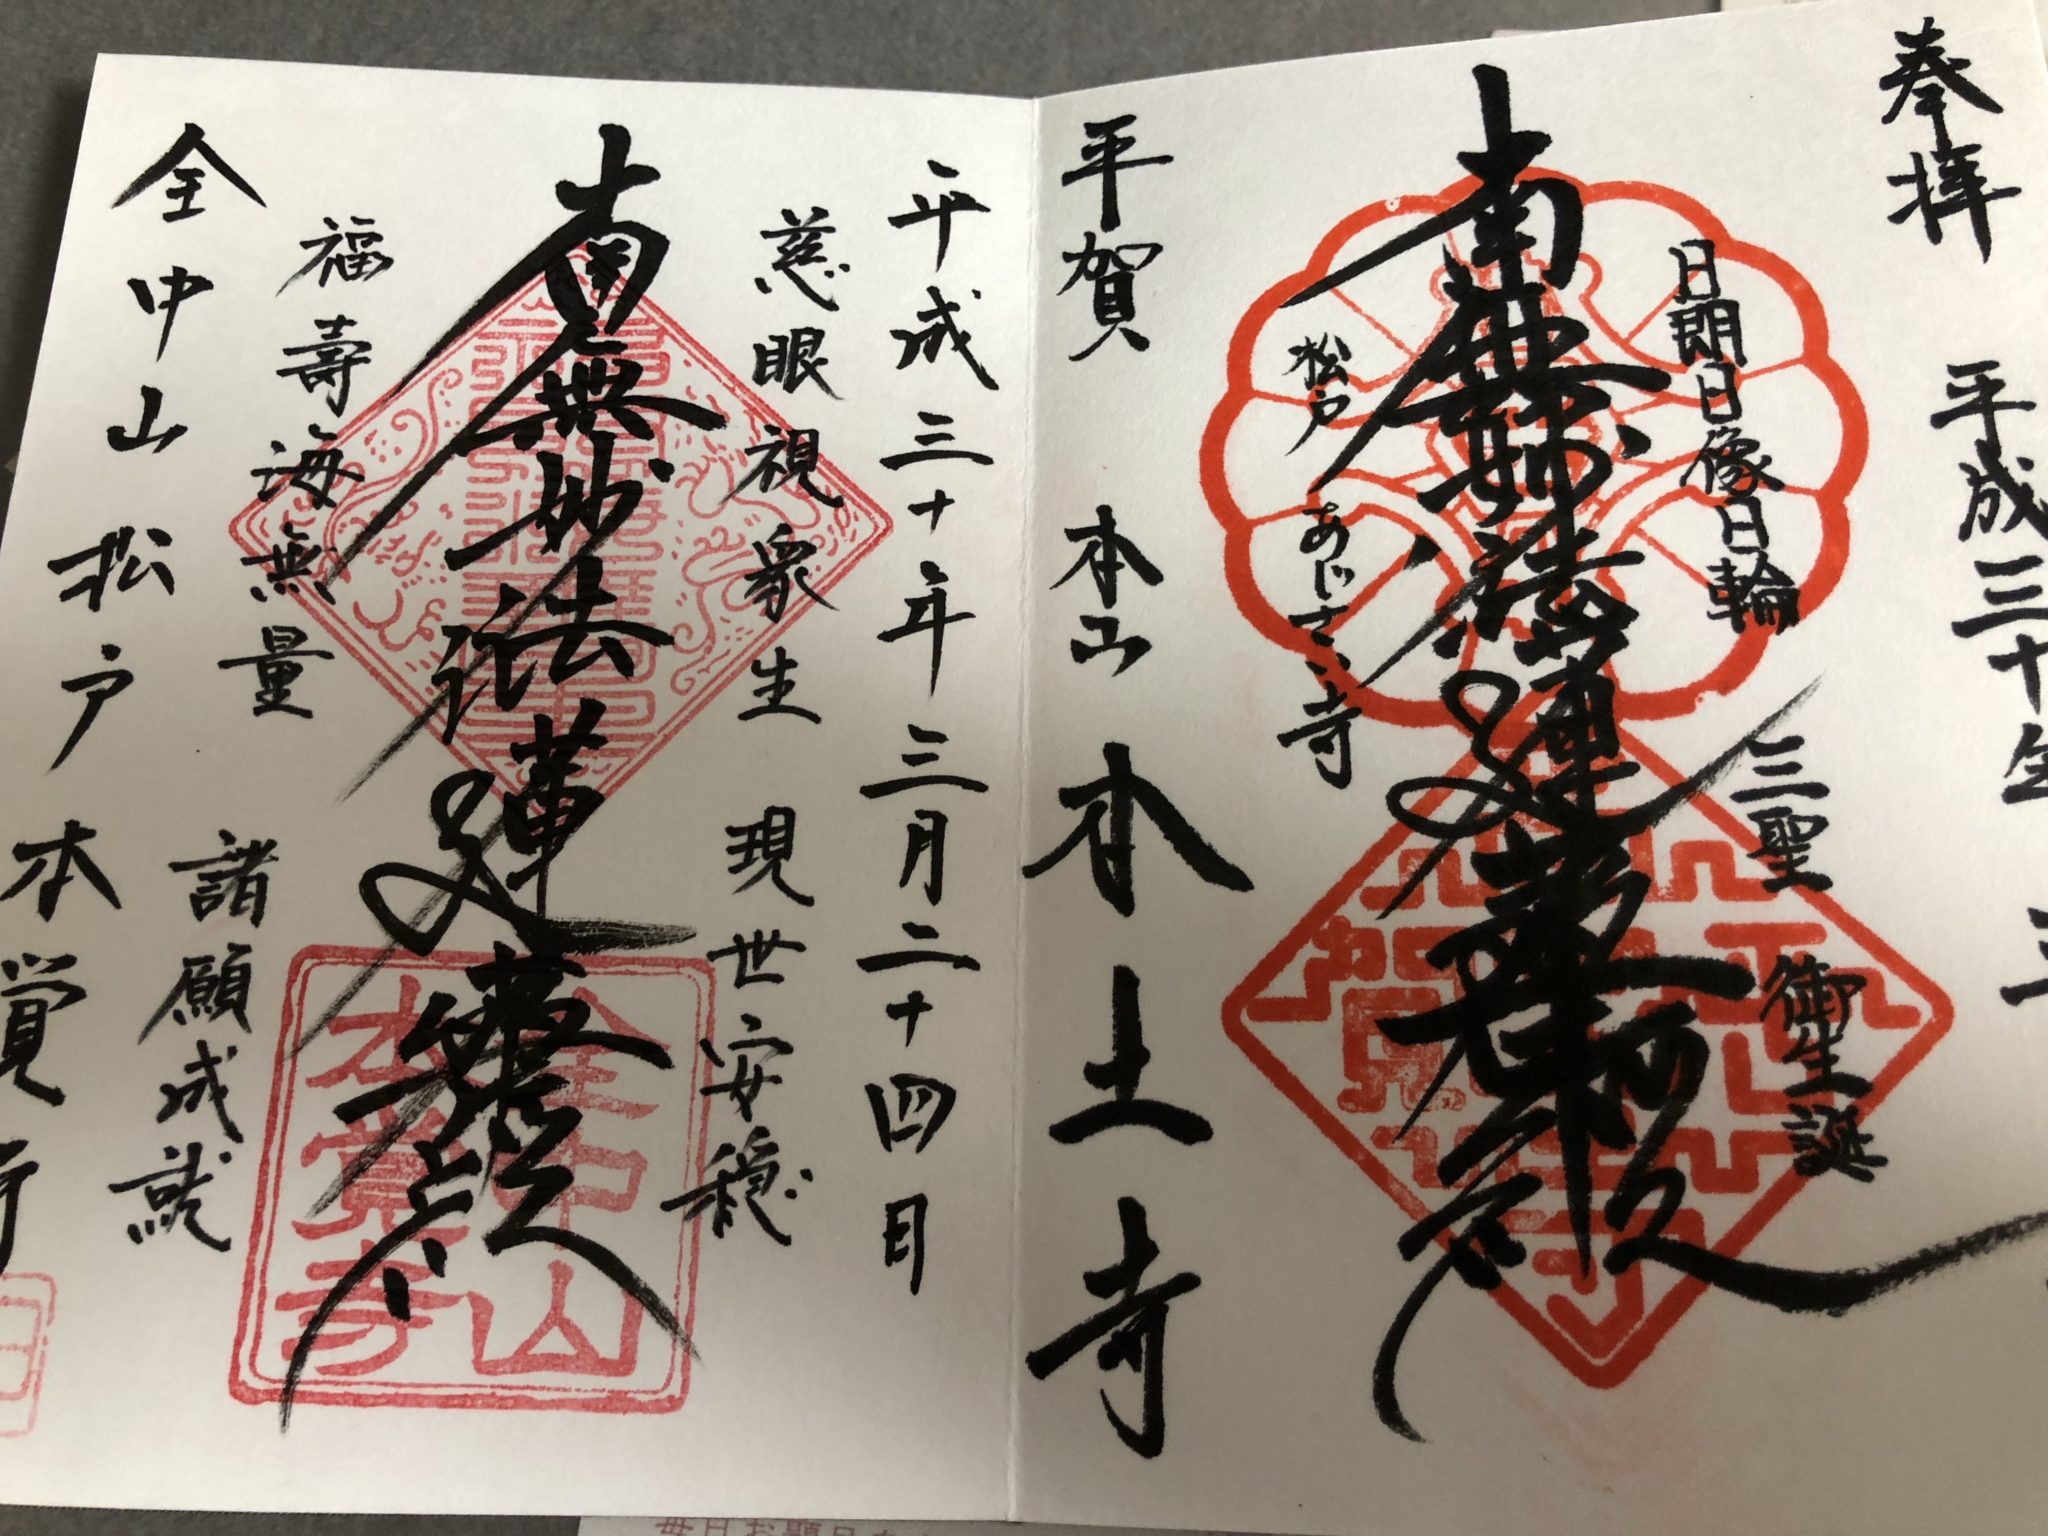 奉拝
平成三十年三
日朗日像日輪
三聖 御生誕
南無妙法蓮華経
松戸 あじさい寺
平賀 本山 本土寺
平成三十年三月二十四日
慈眼視衆生 現世安穏
南無妙法蓮華経
福壽海無量 諸願成就
全中山 松戸 本覚寺
全中山
本覚寺